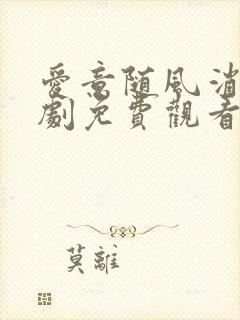 愛意随風消
劇免費觀看
莫離